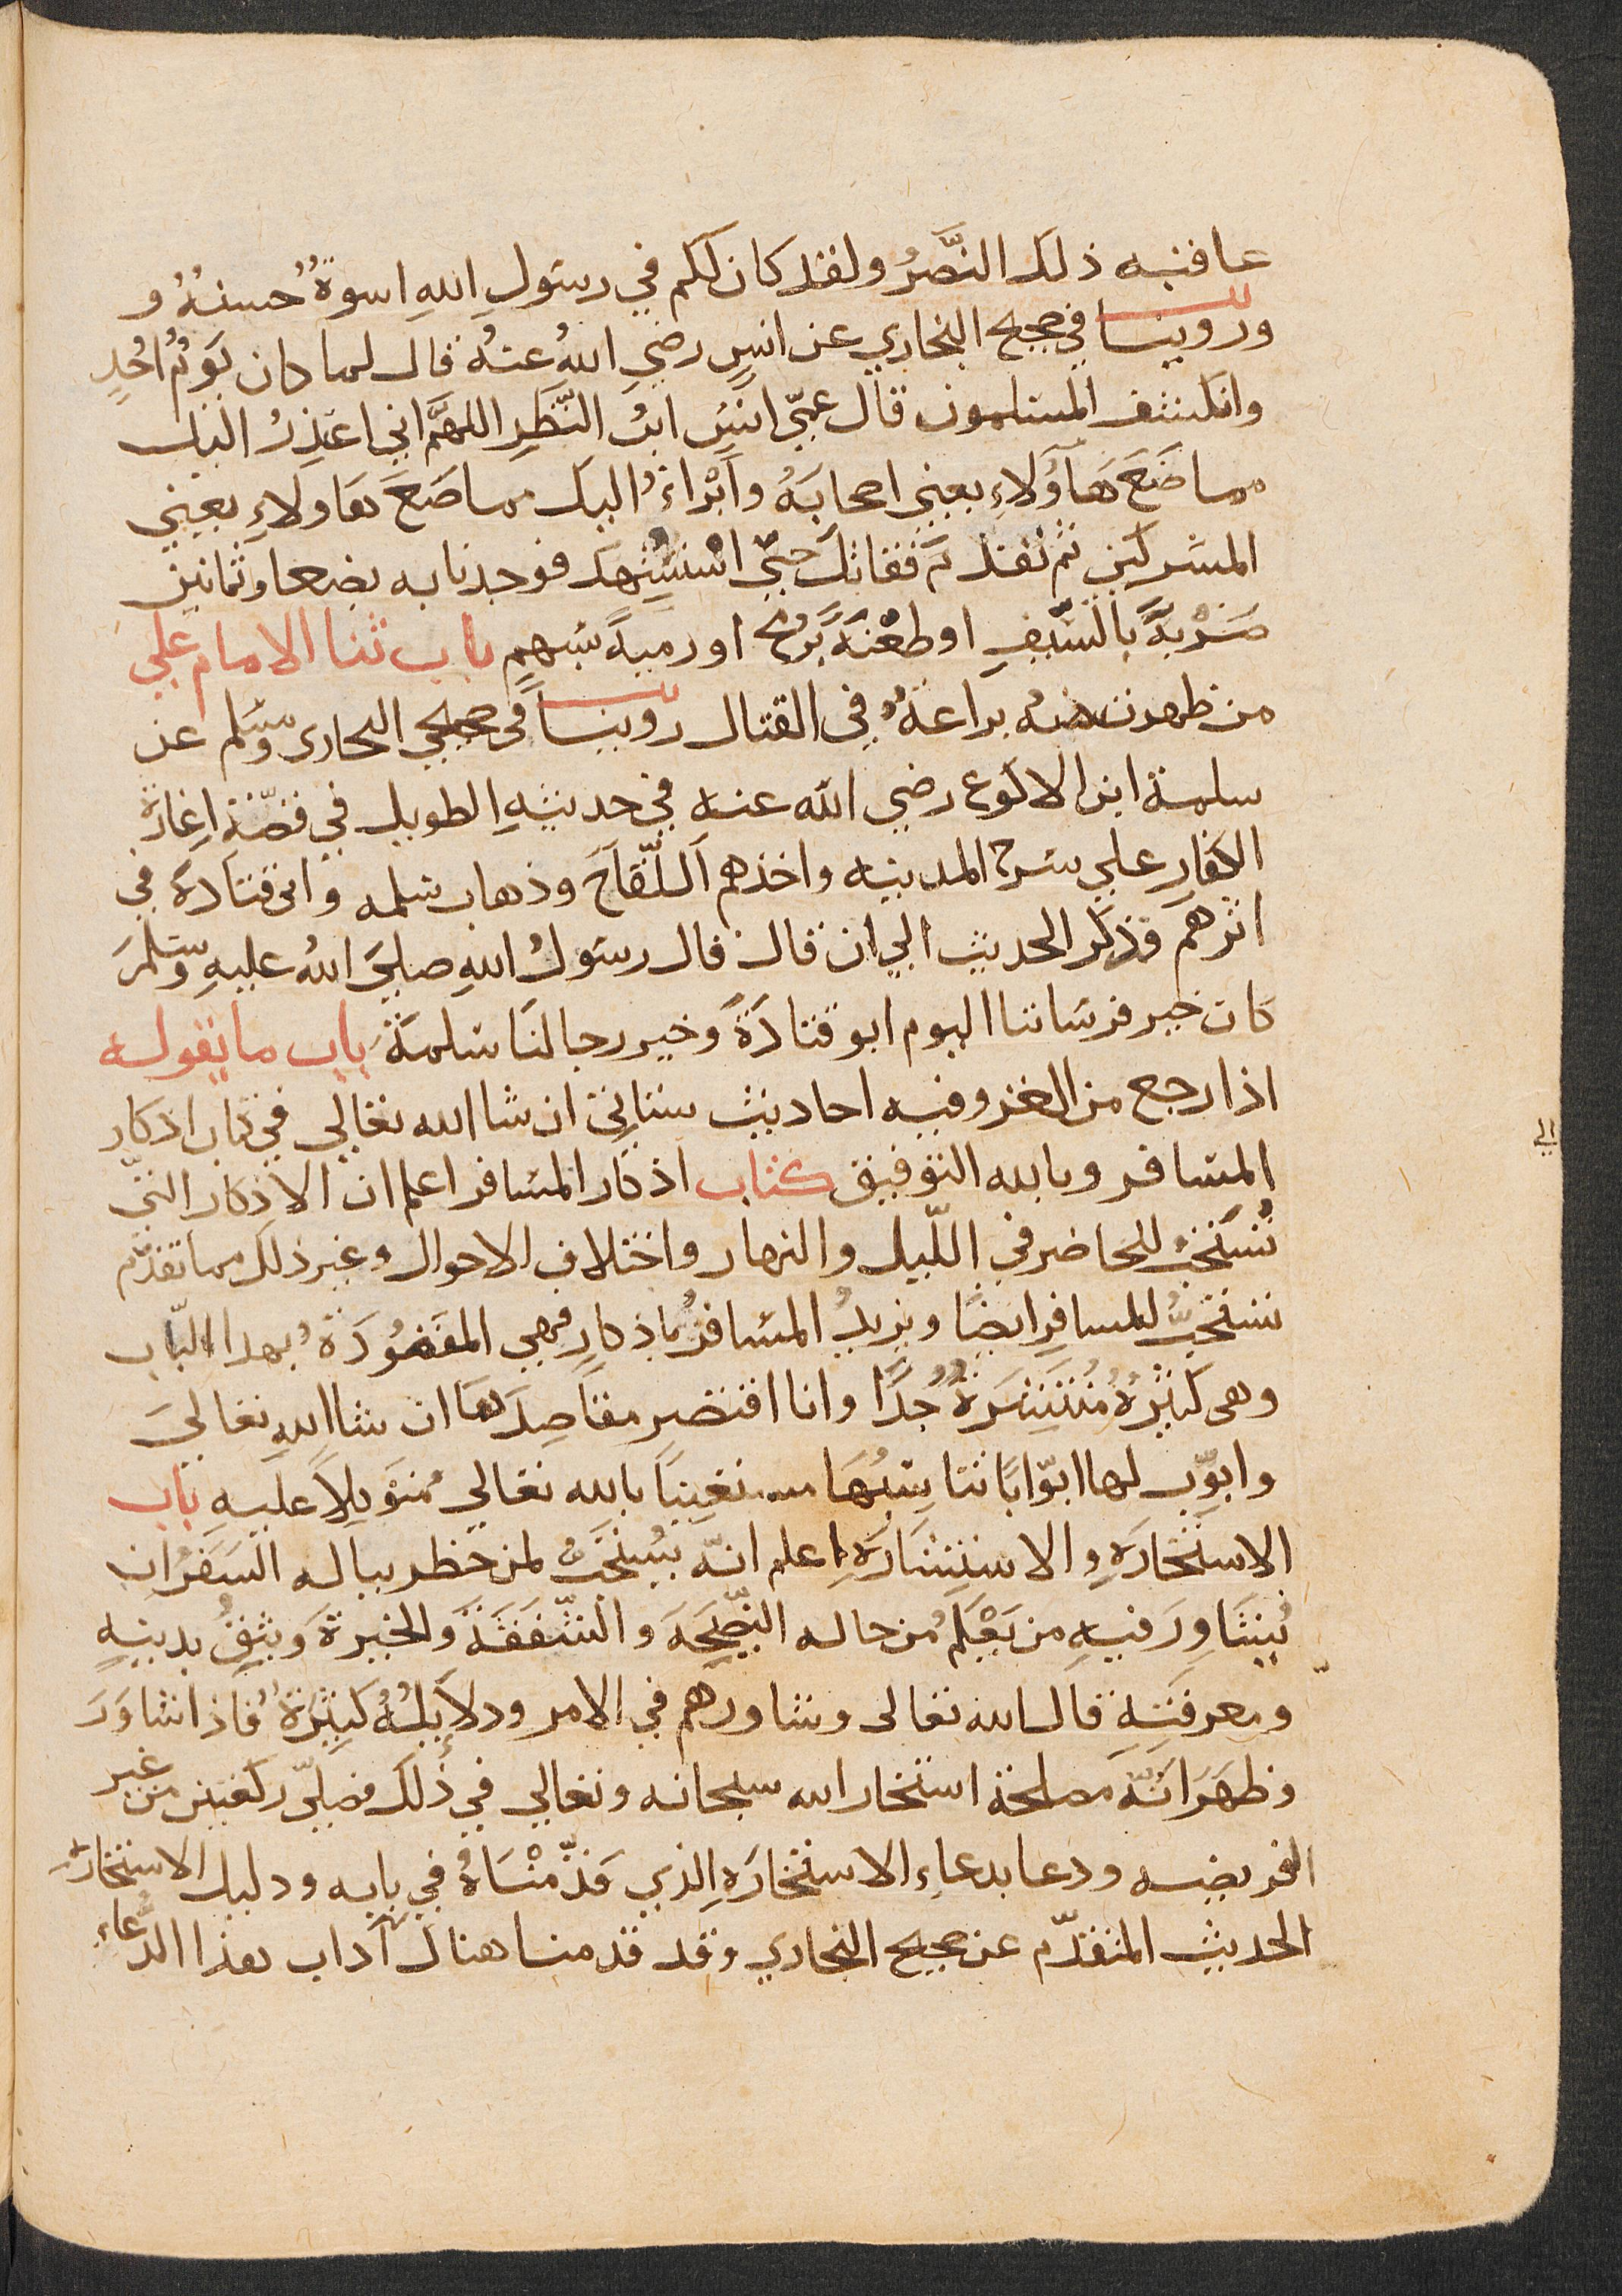 عاقبته ذلك النَّصرُ ولقد كان لكم في رسولِ اللهِ اسوةٌ حسنةٌ و
وروينا في صحيح البخاري عن انسٍ رضي اللهُ عنهُ قال لما كان يَومُ اُحُدٍ
وانكشف المسلمون قال عمّي انسُ ابنُ النَّظرِ اللهمَّ اني اعتذِرُ اليك
مما صَنَعَ هَآوُلاءِ يعني اصحابَهُ وأَبْراءُ اليك مما صَنَعَ هَاولاءِ يعني
المشركين ثم تقدّم فقاتلَ حتّي استُشهِدَ فوجدنا به بضعا وثمانين
ضَرْبةً بالسّيفِ او طعْنَةً برُمحٍ او رميةً بسَهمٍ باب ثنا الامام علي
من ظهرت منه براعةٌ في القتال روينا في صحيحي البخاري ومسلم عن
سلمة ابن الاكوع رضي الله عنه في حديثهِ الطويل في قصّة اِغارة
الكفارِ علي سَرح المدينه واخذهم اَللّقَاحَ وذهاب سلمه وابي قتادَةَ في
اثرهم فذكر الحديث الي ان قال قال رسولُ اللهِ صليَ اللهُ عليهِ وسلمَ
كان خير فرسَاننا اليوم ابو قتادَةَ وخير رجالنَا سلمةَ باب ما يقوله
اذا رجع من الغزو فيه احاديث ستاتي ان شا الله تعالي في كتاب اذكار
المسافر وبالله التوفيق كتاب اذكار المسافر اعلم ان الاذكار التي
تُستَحبُّ للحاضر في اللّيل والنهار واختلاف الاحوال وغير ذلك مما تقدّم
تستحبُّ للمسافرِ ايضًا ويزيدُ المسافرُ باذكارٍ فهي المقصُودَةُ بهدا الباب
وهي كثيرةٌ مُنتشِرةٌ جُدًّا وانا اختصر مقاصِدَهَا ان شا اللهِ تعاليَ
وابوّب لها ابوّابًا تناسِبُهَا مستعِينًا بالله تعالي متوكلاً عليهِ باب
الاستخَارَهِ والاستِشَارَهِ اعلم انّه يُستحَبُّ لمن خطر بباله السَفَرُ ان
يُشَاوِرَ فيهِ من يَعْلَمُ من حاله النّصِيحَةَ والشّفقَةَ والخبرةَ ويثِقُ بدينهِ
ومعرفَتِهِ قال الله تعالى وشاورهم في الامر ودلاَيِلُهُ كثِيرَةٌ فاذا شاوَرَ
وظهَرَ انّهُ مَصلحَة استخار الله سبحانه وتعالي في ذلكَ فصَلّي ركعتين من غير
الفريضه ودعا بدعاءِ الاستخارَهِ الذي قدّمْنَاهُ في بابه ودليل الاستخارة
الحديث المتقدّم عن صحيح البخاري وقد قدمنا هناك آداب هذا الدُّعاء